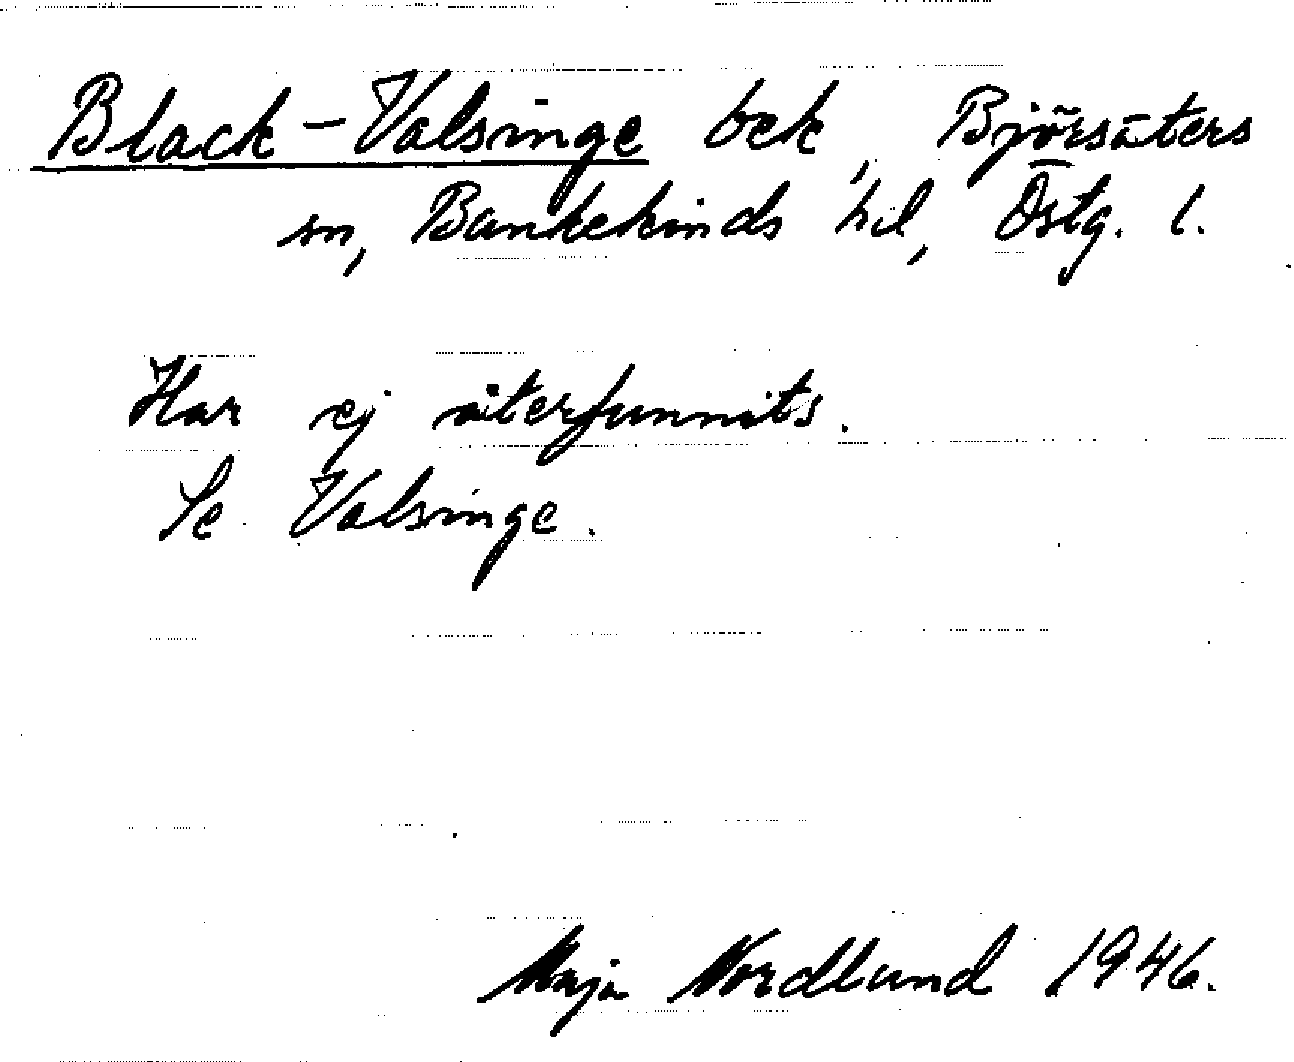 Black-Valsinge bek, Björsäters
sn, Bankekinds hd, Östg. l.
Har ej återfunnits.
Se Valsinge.
Maja Nordlund 1946.